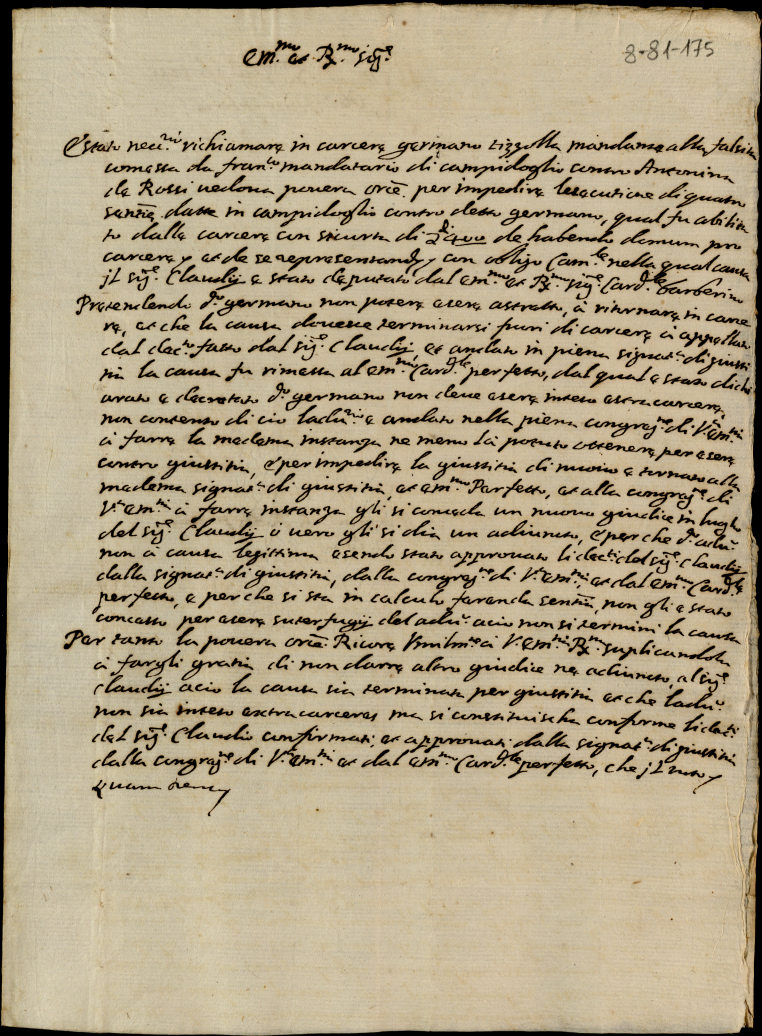 Em.mo et R.mo Sig.re
8-81-175
E stato nec.rio richiamare in carcere germano tizzella mandante alla falsita
comessa da fran.co mandatario di campidoglio contro Antonina
de Rossi uedoua pouera or.ce per impedire lesecutione di quatro
sentie. datte in campidoglio contro detto germano, qual fu abilita
to dalle carcere con sicurta di 400 de habendo domum pro
carcere et de se representando con obligo Cam.le nella qual causa
il Sig.r Claudij e stato deputato dal em.mo et R.mo Sig.re Card.le Barberino
Pretendendo d.o germano non potere esere astretto, a ritornare in carce
re, et che la causa douesse terminarsi fuori di carcere a appellato
dal dec.to fatto dal Sig.r Claudij, et andato in piena signat.ra di giusti
tia la causa fu rimessa al em.mo Card.le perfetto, dal qual e stato dichi
arato e decretato d.o germano non deue esere inteso extra carcere,
non contento di cio ladu.rio e andato nella piena congreg.ne di V. em.tia
a farre la medema instanza ne meno la potuto ottenere, per esere
contro giustitia, e per impedire la giustitia di nuouo e tornato alla
medema signat.ra di giustitia, et em.mo Perfetto, et alla congreg.ne di
V. em.tia a farre instanza gli si conceda un nuouo giudice in luogho
del Sig.r Claudij o uero gli si dia un adiunto, e perche d.o adu.rio
non a causa legittima esendo stato approuato li dec.ti del Sig.r Claudij
dalla signat.ra di giustitia, dalla congreg.ne di V. em.tia, et dal em.mo Card.le
perfetto, e perche si sta in calculo farenda sentia, non gli e stato
concesso per esere suterfugij del adu.rio acio non si termini la causa
Per tanto la pouera or.ce Ricore Vmilm.te a V. em.tia R.ma suplicandola
a fargli gratia di non darre altro giudice ne adiunto, al Sig.r
Claudij acio la causa sia terminata per giustitia et che ladu.rio
non sia inteso extra carceres ma si constituischa conforme li dec.ti
del Sig.r Claudio confirmati, et approuati dalla signat.ra di giustitia
dalla congreg.ne di V. em.tia et dal em.mo Card.le perfetto, che il tutto
Quam Deus